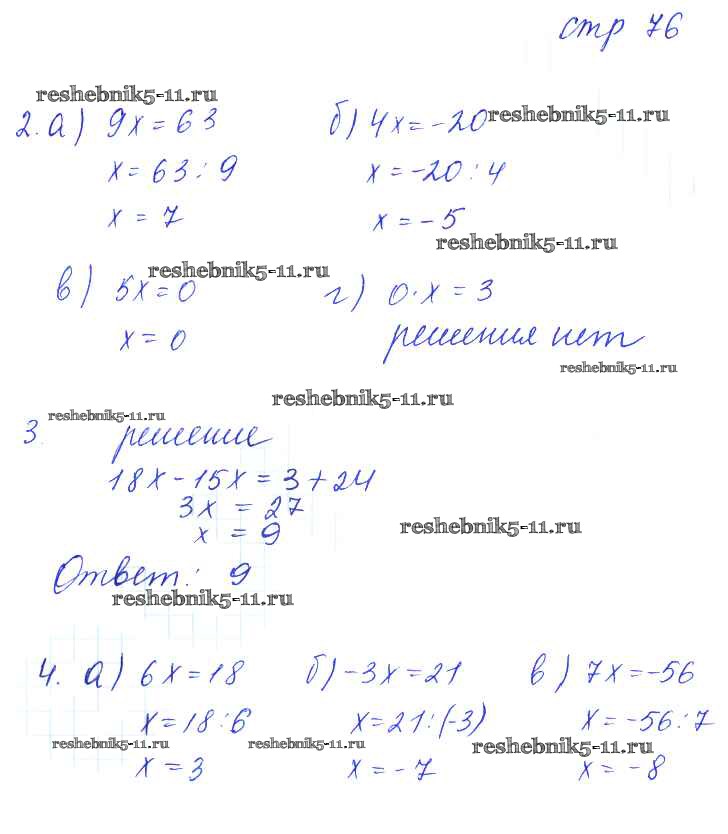 стр 76
reshebnik5-11.ru
2. а) 9х = 63 б) 4х = -20 reshebnik5-11.ru
х = 63 : 9 х = -20 : 4
х = 7 х = -5
reshebnik5-11.ru
reshebnik5-11.ru
в) 5х = 0 г) 0·х = 3
х = 0 решения нет
reshebnik5-11.ru
reshebnik5-11.ru
reshebnik5-11.ru
3. решение
18х - 15х = 3 + 24
3х = 27
х = 9 reshebnik5-11.ru
Ответ: 9
reshebnik5-11.ru
4. а) 6х = 18 б) -3х = 21 в) 7х = -56
х = 18 : 6 х = 21 : (-3) х = -56 : 7
reshebnik5-11.ru reshebnik5-11.ru reshebnik5-11.ru
х = 3 х = -7 х = -8